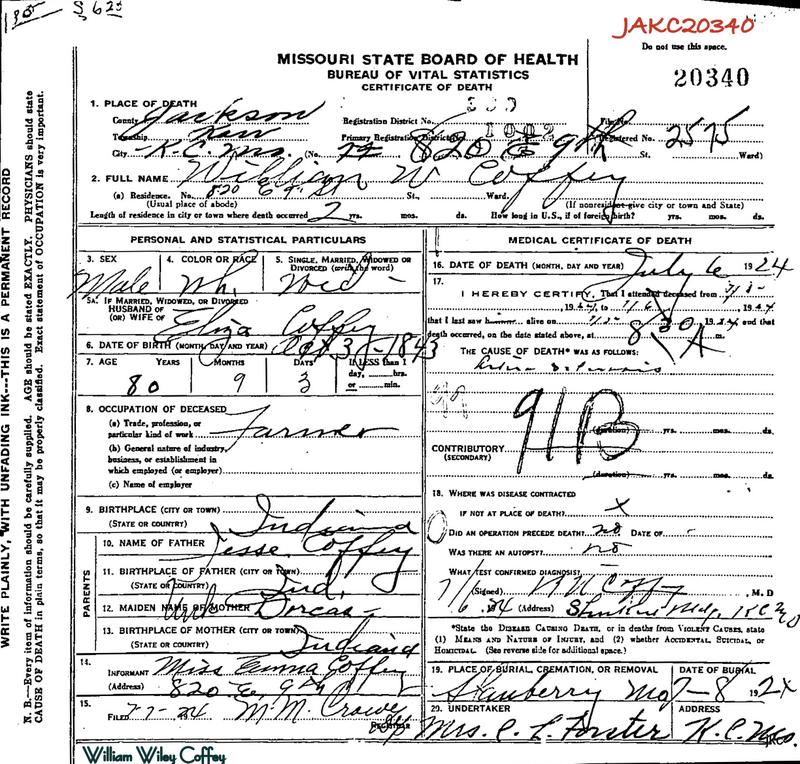 JAKC20340
Do not use this space.
MISSOURI STATE BOARD OF HEALTH
BUREAU OF VITAL STATISTICS
CERTIFICATE OF DEATH
20340
1. PLACE OF DEATH
County Jackson Registration District No. File No.
Township Kaw Primary Registration District No. 1002 Registered No. 2575
City K.C. Mo. (No. 820 E 9th St. Ward)
2. FULL NAME William W Coffey
(a) Residence. No. 820 E 9th St St., Ward.
(Usual place of abode) (If nonresident give city or town and State)
Length of residence in city or town where death occurred 2 yrs. mos. ds. How long in U.S., if of foreign birth? yrs. mos. ds.
PERSONAL AND STATISTICAL PARTICULARS
3. SEX 4. COLOR OR RACE 5. SINGLE, MARRIED, WIDOWED OR DIVORCED (write the word)
Male Wh. Wid
5A. IF MARRIED, WIDOWED, OR DIVORCED
HUSBAND OF
(OR) WIFE OF Eliza Coffey
6. DATE OF BIRTH (MONTH, DAY AND YEAR) Oct 3 1843
7. AGE YEARS MONTHS DAYS If LESS than 1 day, hrs. or min.
80 9 3
8. OCCUPATION OF DECEASED
(a) Trade, profession, or
particular kind of work Farmer
(b) General nature of industry,
business, or establishment in
which employed (or employer)
(c) Name of employer
9. BIRTHPLACE (CITY OR TOWN)
(STATE OR COUNTRY) Indiana
PARENTS
10. NAME OF FATHER Jesse Coffey
11. BIRTHPLACE OF FATHER (CITY OR TOWN)
(STATE OR COUNTRY) Ind.
12. MAIDEN NAME OF MOTHER Dorcas
13. BIRTHPLACE OF MOTHER (CITY OR TOWN)
(STATE OR COUNTRY) Indiana
14.
INFORMANT Miss Emma Coffey
(Address) 820 E. 9th
15.
FILED 7-7-24 M.M. Crowe
REGISTRAR
MEDICAL CERTIFICATE OF DEATH
16. DATE OF DEATH (MONTH, DAY AND YEAR) July 6 1924
17.
I HEREBY CERTIFY, That I attended deceased from
, 19 , to , 19
that I last saw alive on , 19 and that
death occurred, on the date stated above, at 8 30 A m.
THE CAUSE OF DEATH* WAS AS FOLLOWS:
91B
(duration) yrs. mos. ds.
CONTRIBUTORY
(SECONDARY)
(duration) yrs. mos. ds.
18. WHERE WAS DISEASE CONTRACTED
IF NOT AT PLACE OF DEATH? X
DID AN OPERATION PRECEDE DEATH? no DATE OF
WAS THERE AN AUTOPSY? no
WHAT TEST CONFIRMED DIAGNOSIS?
(Signed) Coffey, M. D
7/6, 1924 (Address)
*State the DISEASE CAUSING DEATH, or in deaths from VIOLENT CAUSES, state
(1) MEANS AND NATURE OF INJURY, and (2) whether ACCIDENTAL, SUICIDAL, or
HOMICIDAL. (See reverse side for additional space.)
19. PLACE OF BURIAL, CREMATION, OR REMOVAL DATE OF BURIAL
Stanberry Mo 7-8 192
20. UNDERTAKER ADDRESS
Mrs. C. L. Forster K.C. Mo.
William Wiley Coffey
WRITE PLAINLY, WITH UNFADING INK---THIS IS A PERMANENT RECORD
N. B.—Every item of information should be carefully supplied. AGE should be stated EXACTLY. PHYSICIANS should state
CAUSE OF DEATH in plain terms, so that it may be properly classified. Exact statement of OCCUPATION is very important.